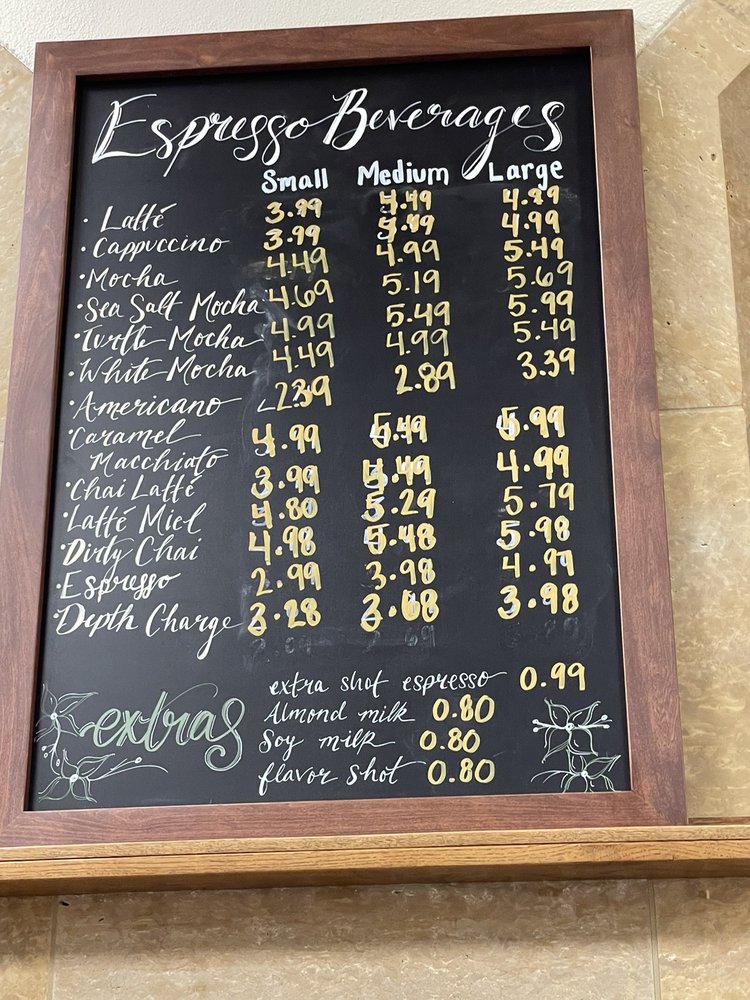 Espresso Beverages
Small Medium Large
· Latté 3.99 4.49 4.99
· Cappuccino 3.99 4.49 4.99
· Mocha 4.49 4.99 5.49
· Sea Salt Mocha 4.69 5.19 5.69
· Turtle Mocha 4.99 5.49 5.99
· White Mocha 4.49 4.99 5.49
· Americano 2.39 2.89 3.39
· Caramel 4.99 5.49 5.99
Macchiato
· Chai Latté 3.99 4.49 4.99
· Latté Miel 4.80 5.29 5.79
· Dirty Chai 4.98 5.48 5.98
· Espresso 2.99 3.98 4.97
· Depth Charge 3.28 3.68 3.98
extras
extra shot espresso 0.99
Almond milk 0.80
Soy milk 0.80
flavor shot 0.80